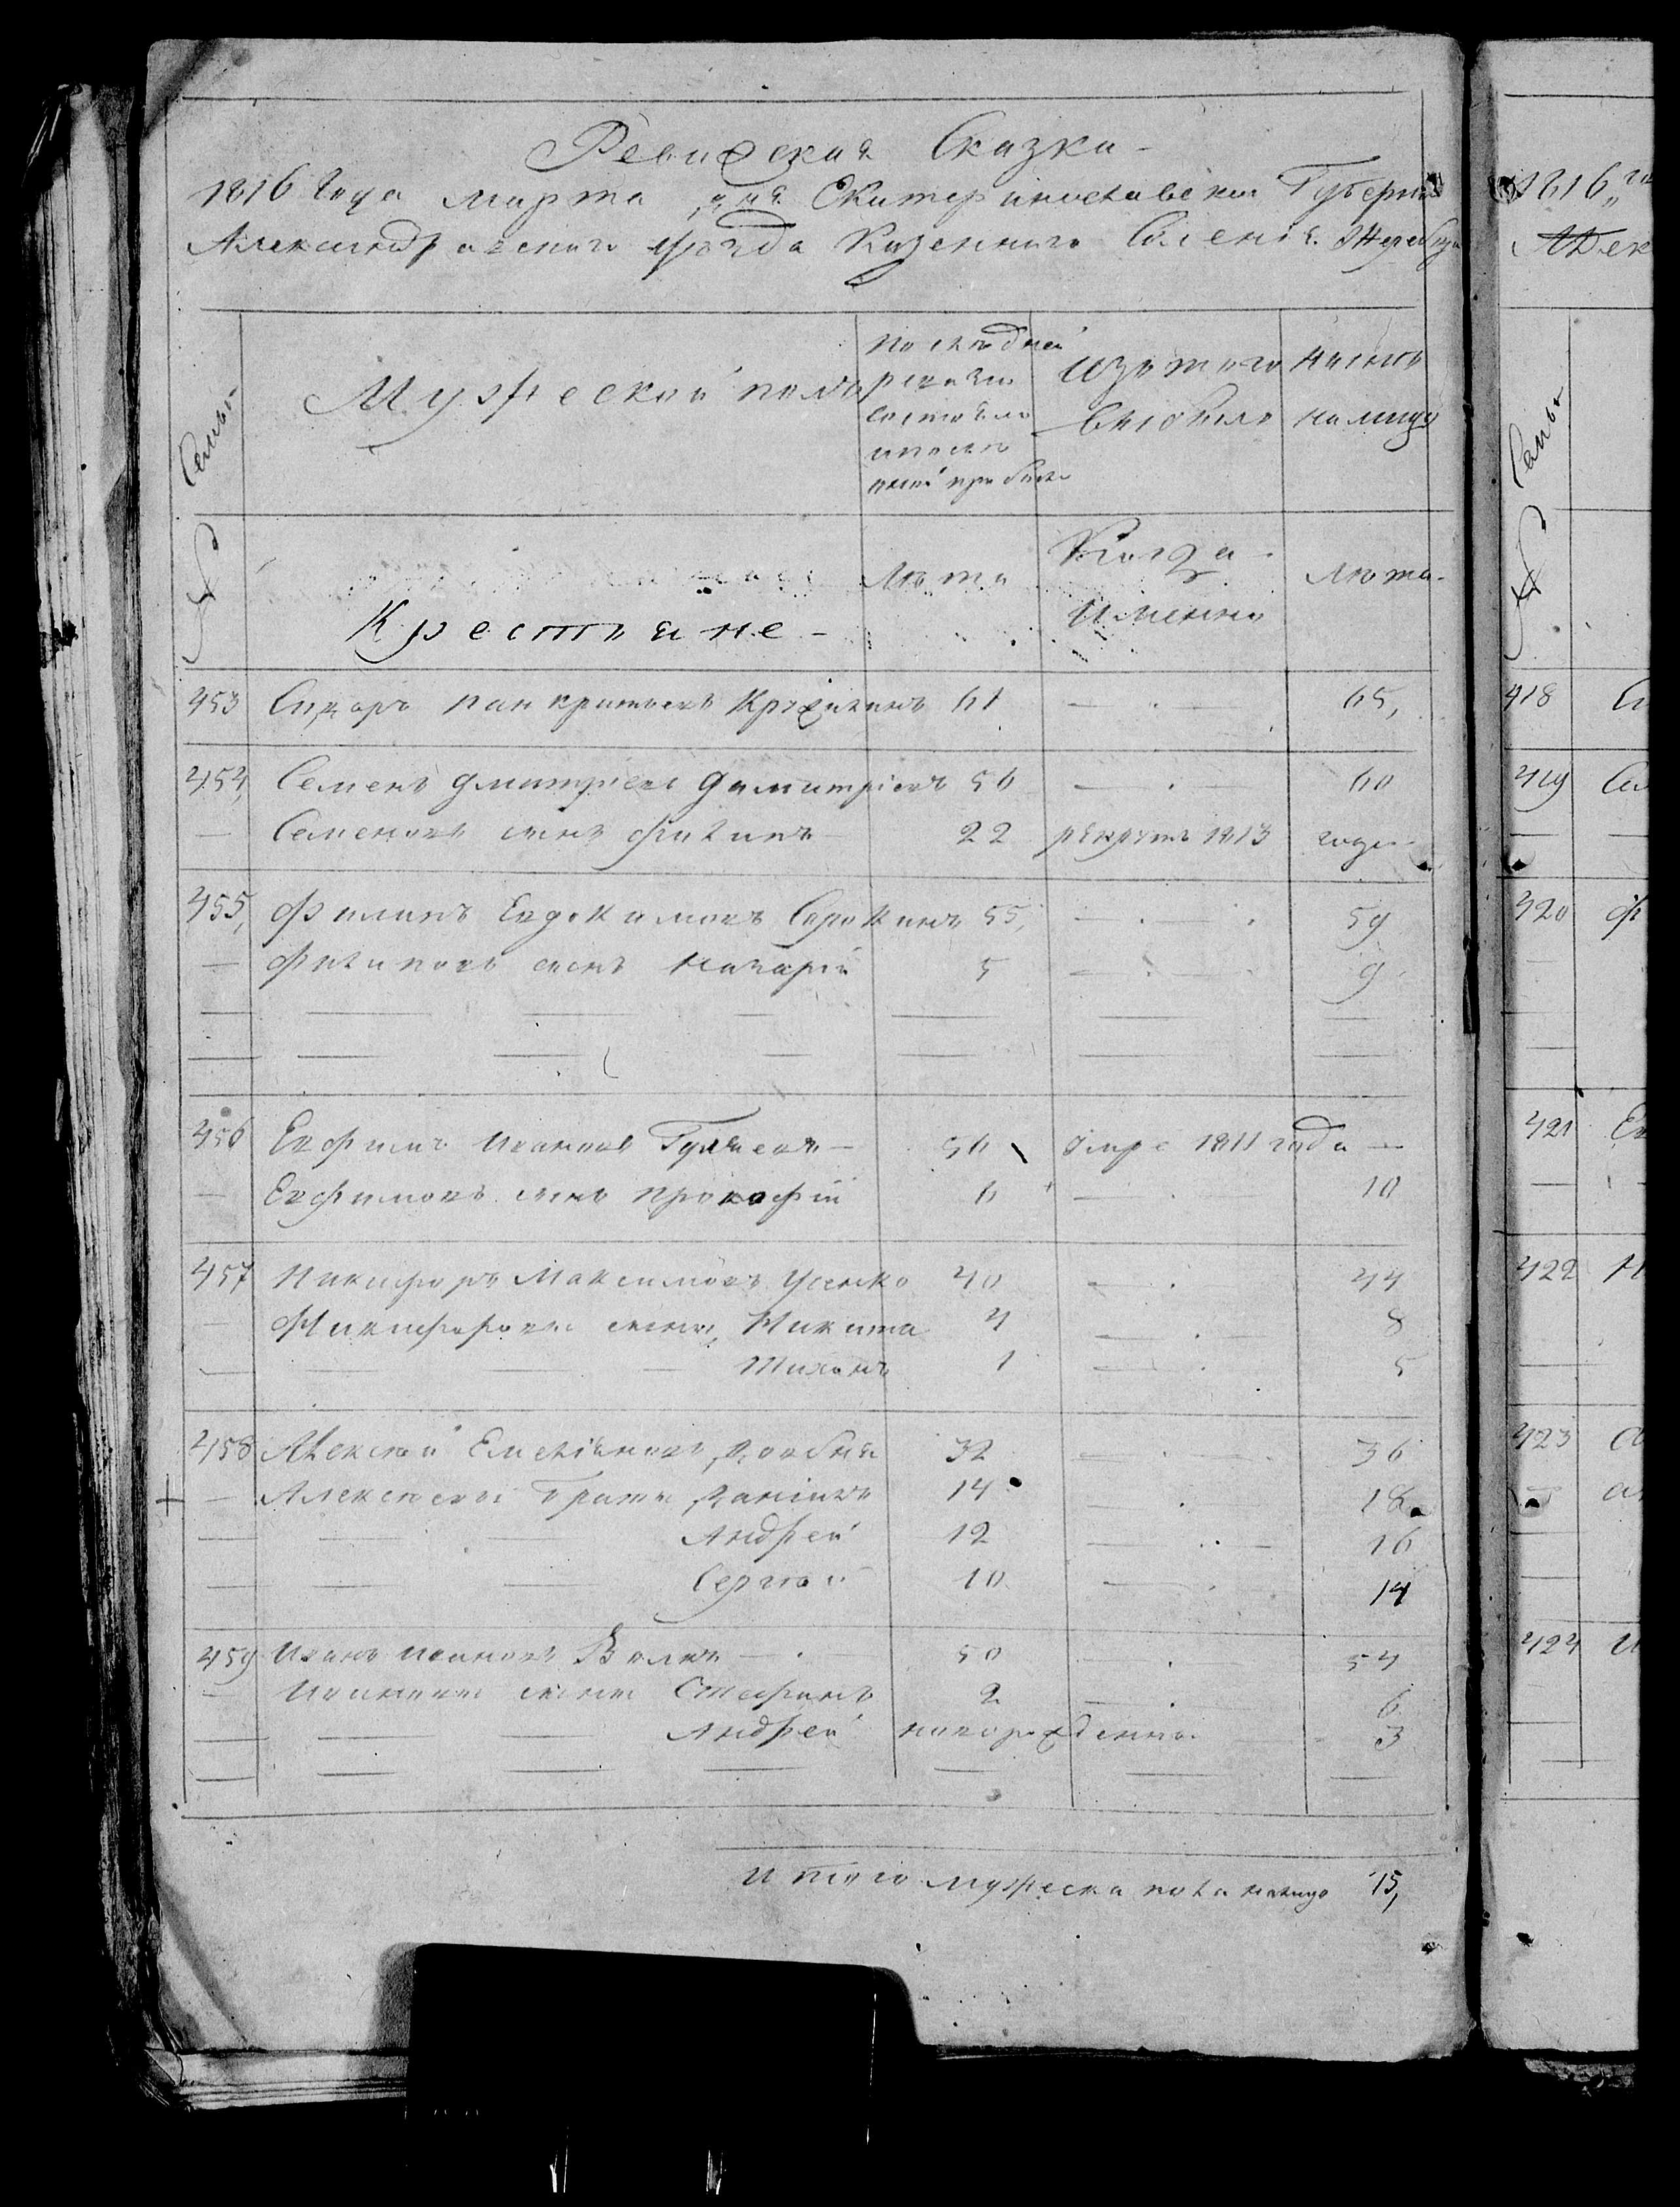 Ревизская Сказка
1816 Года Марта дня Екатеринославской Губернии
Александровского уезда Казенного Селенія Жеребца
№ Семьи
Мужеской полъ
По последней ревизіи состояло и после оной прибыло
Изъ того выбыло
Ныне на лицо
Крестьяне
Лета
Когда именно
Лета
453 Сидоръ Панкратьевъ 61 — 65,
454, Семенъ Дмитріевъ Димитріевъ 56 — 60
— Семеновъ сынъ Филипъ 22 рекрутъ 1813 года
455, Филипъ Евдокимовъ Сорокинъ 55, — 59
— Филиповъ сынъ Назарій 5 — 9
456 Евфимъ Ивановъ Гуляевъ — 56 Умре 1811 года —
— Евфимовъ сынъ Прокофій 6 — 10
457 Никифоръ Максимовъ Усенко 40 — 44
— Никифоровы сыны, Никита 4 — 8
— — — Тихонъ 1 — 5
458 Алексей Емеліяновъ Довбня 32 — 36
— Алексеевы Браты Данілъ 14 — 18
— — — Андрей 12 — 16
— — — Сергей 10 — 14
459 Иванъ Ивановъ Волкъ — 50 — 54
— Ивановы сыны Стефанъ 2 — 6
— — — Андрей новорожденны — 3
Итого мужеска пола налицо 15,
1816
Алек
№ Семьи
418
419
420 Ф
421
422 Н
423
424 И